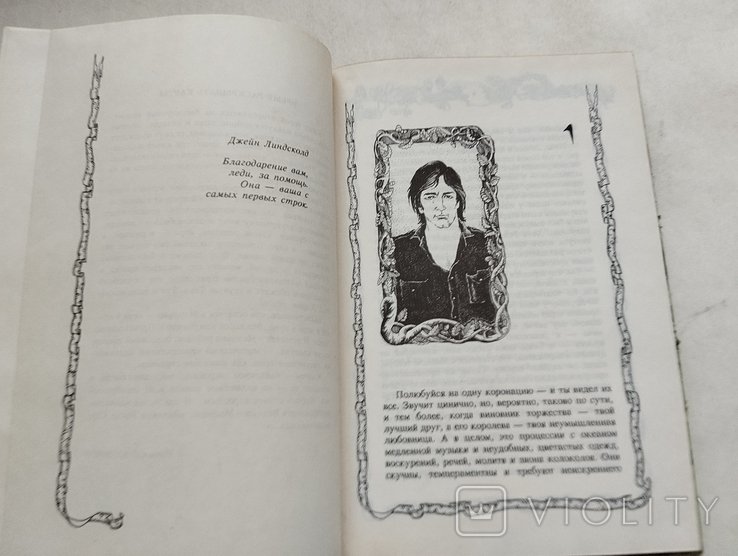 Джейн Линдсколд
Благодарение вам,
леди, за помощь.
Она — ваша с
самых первых строк.
1
Полюбуйся на одну коронацию — и ты видел их
все. Звучит цинично, но, вероятно, таково по сути,
и тем более, когда виновник торжества — твой
лучший друг, а его королева — твоя неумышленная
любовница. А в целом, это процессии с океаном
медленной музыки и неудобных, цветастых одежд,
воскурений, речей, молитв и звона колоколов. Они
скучны, темпераментны и требуют неискреннего
VIOLITY